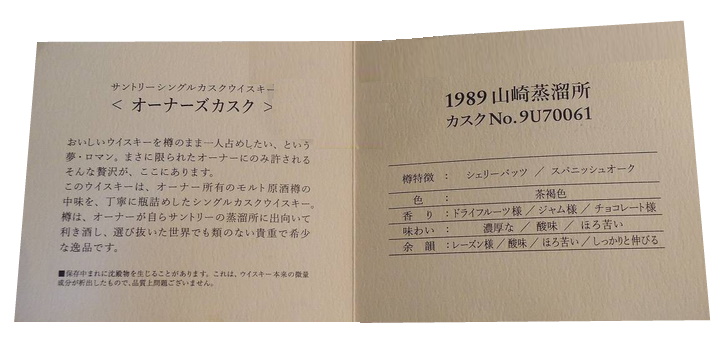 サントリーシングルカスクウイスキー
< オーナーズカスク >
おいしいウイスキーを樽のまま一人占めしたい、という
夢・ロマン。まさに限られたオーナーにのみ許される
そんな贅沢が、ここにあります。
このウイスキーは、オーナー所有のモルト原酒樽の
中味を、丁寧に瓶詰めしたシングルカスクウイスキー。
樽は、オーナーが自らサントリーの蒸溜所に出向いて
利き酒し、選び抜いた世界でも類のない貴重で希少
な逸品です。
■保存中まれに沈澱物を生じることがあります。これは、ウイスキー本来の微量
成分が析出したもので、品質上問題ございません。
1989 山崎蒸溜所
カスクNo.9U70061
樽特徴 : シェリーバッツ / スパニッシュオーク
色 : 茶褐色
香り : ドライフルーツ様 / ジャム様 / チョコレート様
味わい : 濃厚な / 酸味 / ほろ苦い
余韻 : レーズン様 / 酸味 / ほろ苦い / しっかりと伸びる